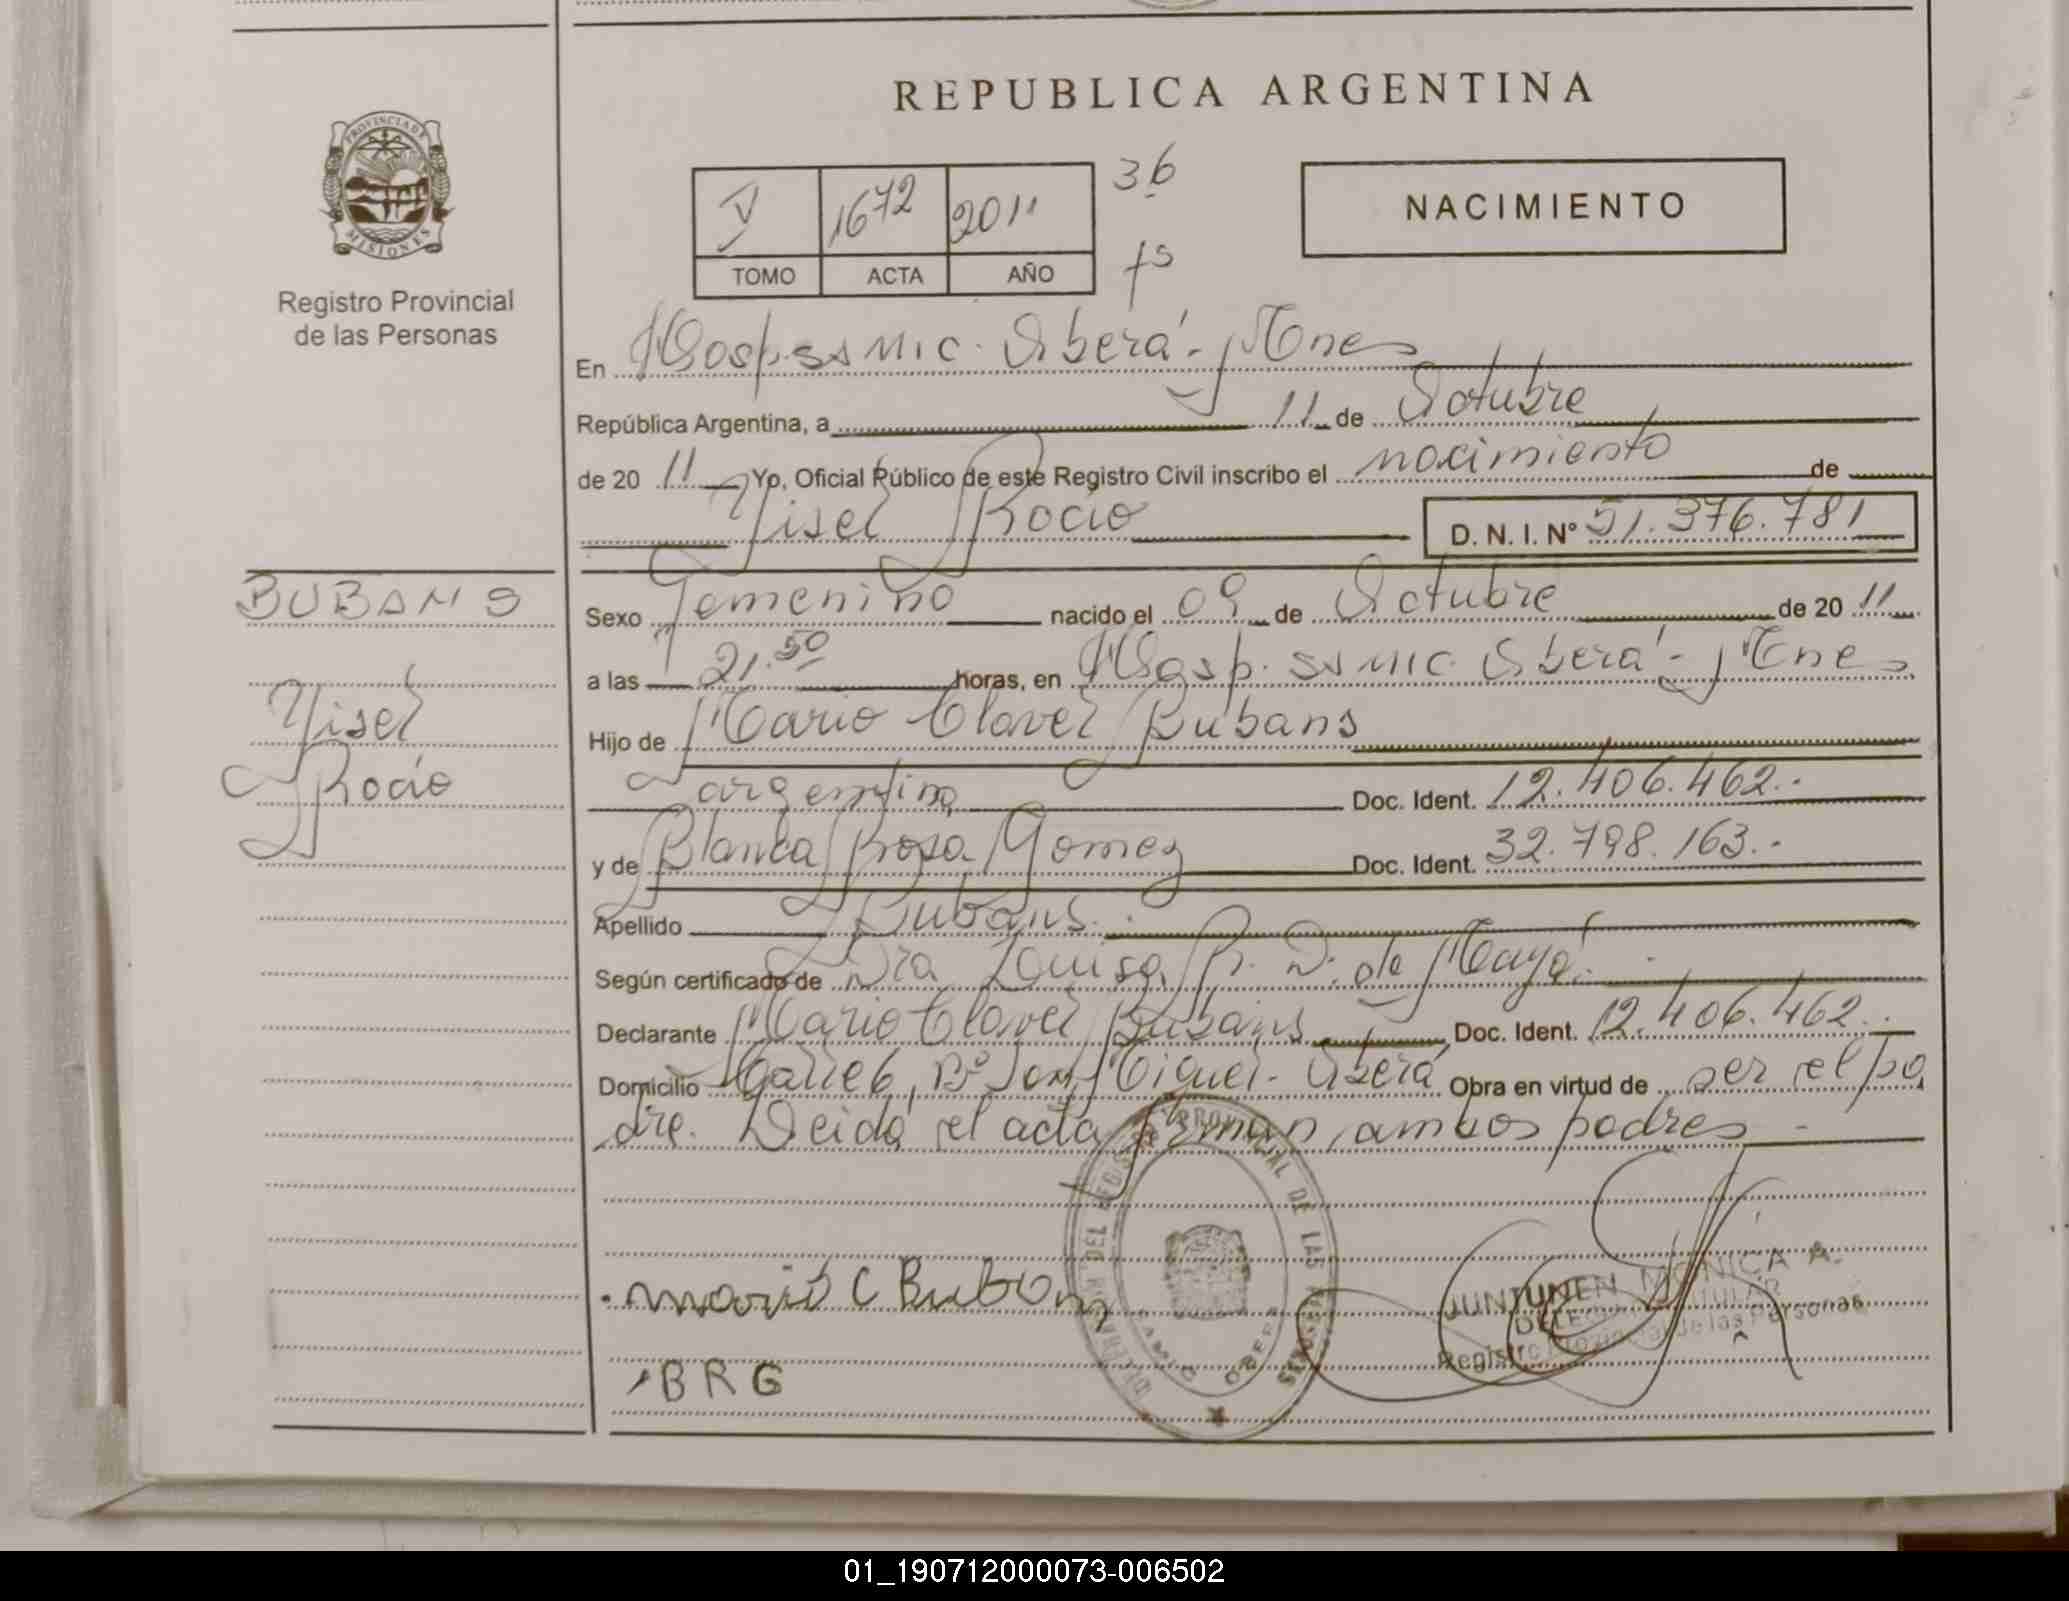 REPUBLICA ARGENTINA
PROVINCIA DE
MISIONES
Registro Provincial
de las Personas
V 1672 2011 36
TOMO ACTA AÑO
NACIMIENTO
En Hosp. SS MIC. Oberá - Mnes
República Argentina, a 11 de Octubre
de 20 11 Yo, Oficial Público de este Registro Civil inscribo el nacimiento de
Yisel Rocio D. N. I. N° 51.376.781
BUBANS
Yisel
Rocio
Sexo Femenino nacido el 09 de Octubre de 20 11
a las 21.50 horas, en Hosp. SS MIC. Oberá - Mnes
Hijo de Mario Clavel Bubans
argentino Doc. Ident. 12.406.462.-
y de Blanca Rosa Gomez Doc. Ident. 32.798.163.-
Apellido Bubans.
Según certificado de Dra Louisa R. D. de Maya.
Declarante Mario Clavel Bubans Doc. Ident. 12.406.462.
Domicilio Calle 6, B° San Miguel - Oberá Obra en virtud de ser el pa
dre. Leida el acta firman ambos padres -
Mario C Bubans
BRG
PROVINCIAL DE LAS PERSONAS
OBERA
JUNTUNEN MONICA A.
DELEGADA TITULAR
Registro Provincial de las Personas
01_190712000073-006502